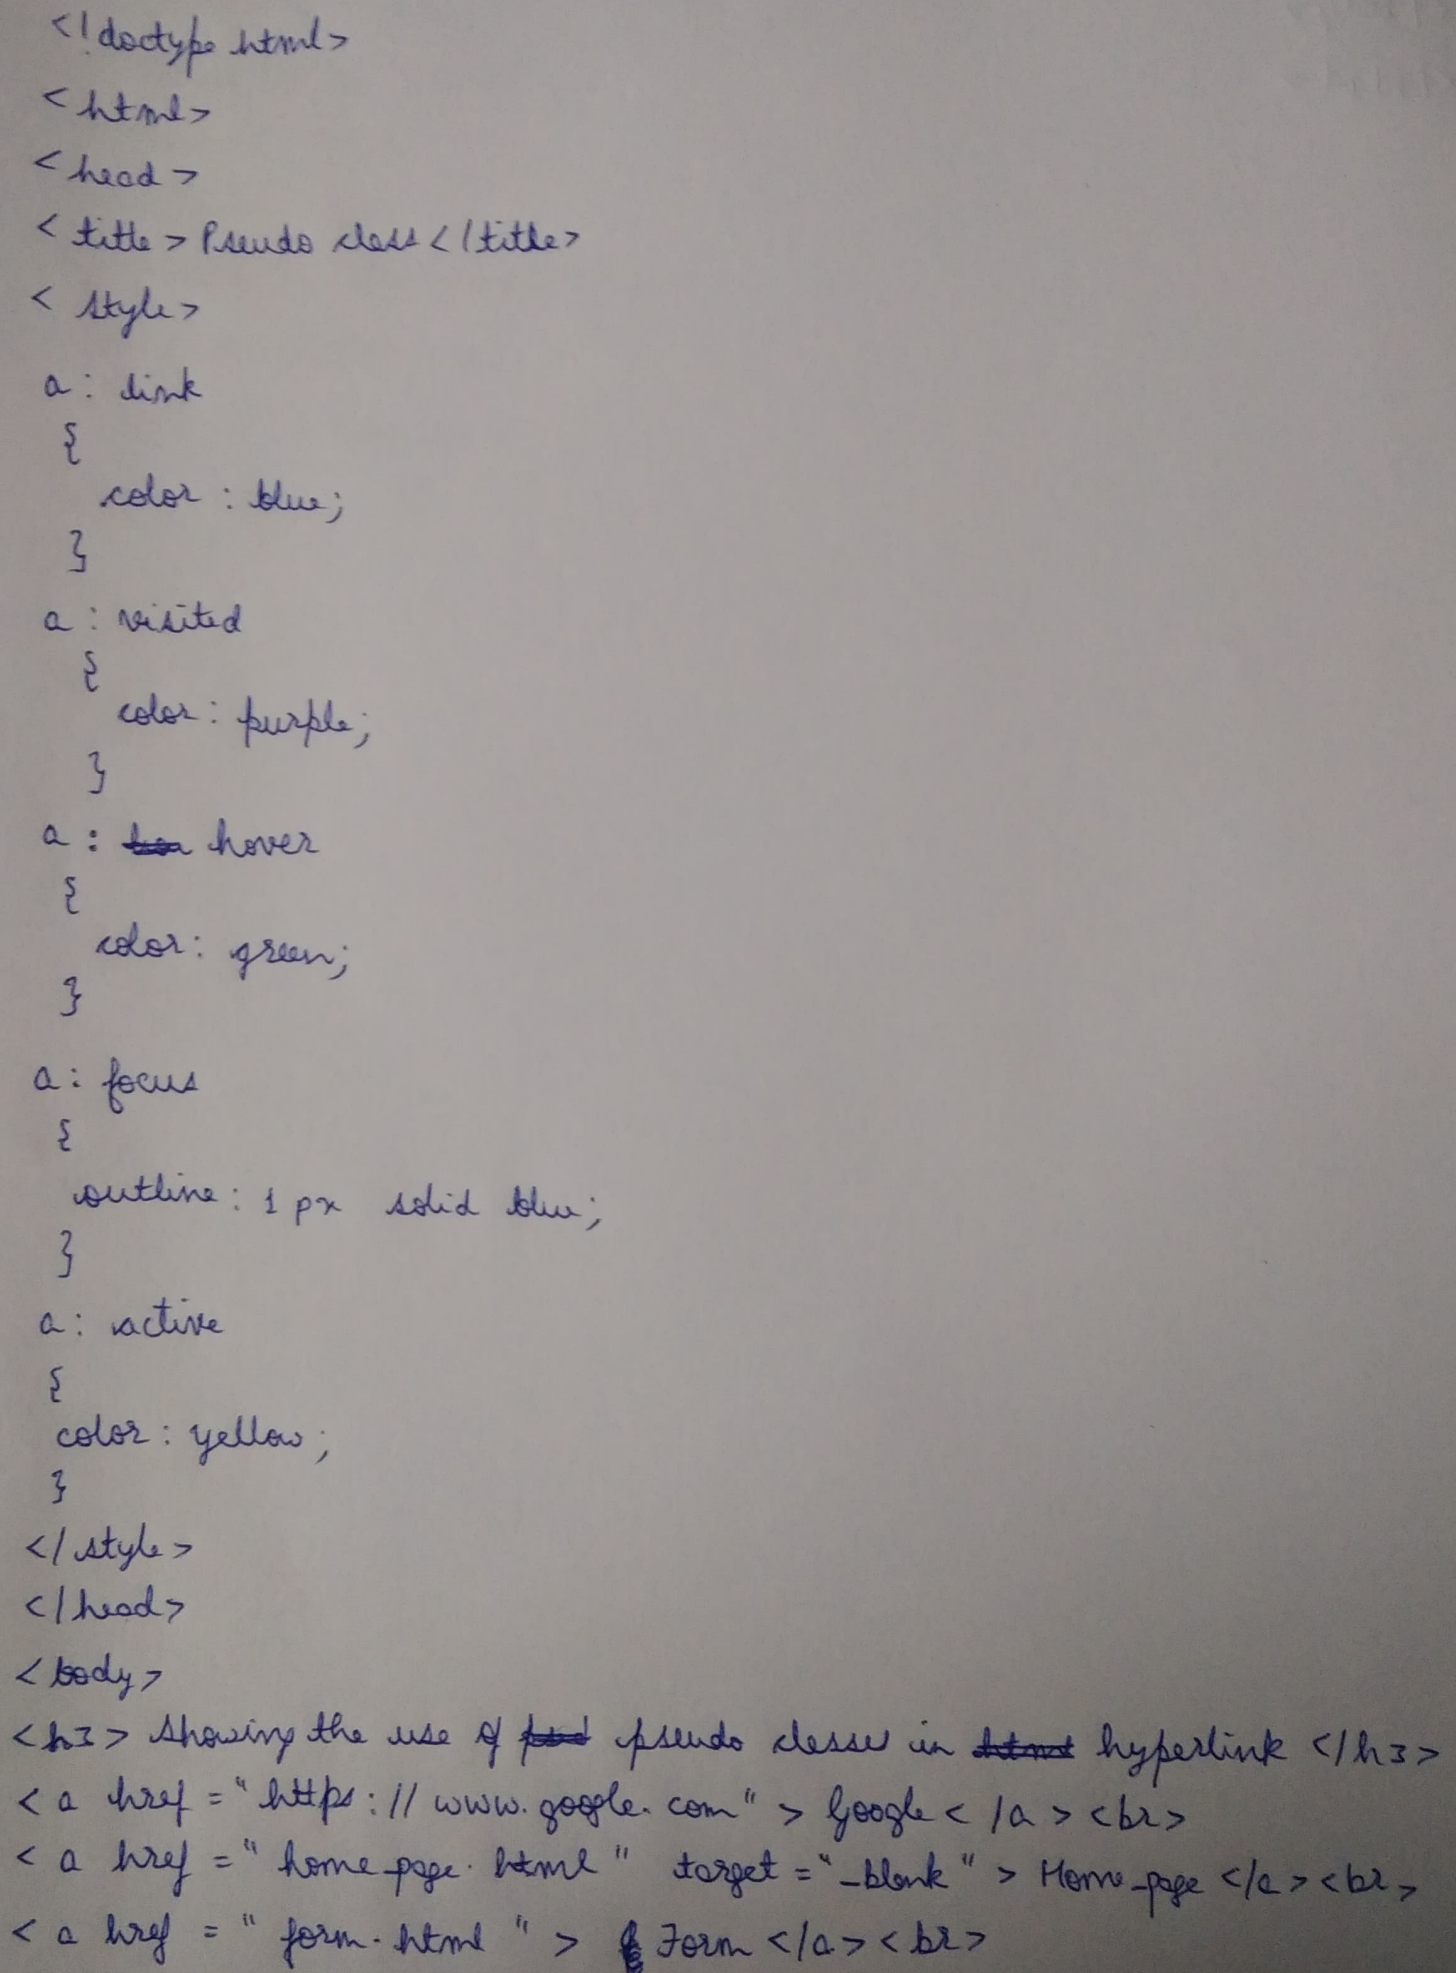 <!doctype html>
<html>
<head>
<title>Pseudo class</title>
<style>
a: link
{
color: blue;
}
a: visited
{
color: purple;
}
a: hover
{
color: green;
}
a: focus
{
outline: 1px solid blue;
}
a: active
{
color: yellow;
}
</style>
</head>
<body>
<h3> Showing the use of pseudo classes in hyperlink </h3>
<a href="https://www.google.com"> Google</a><br>
<a href="home_page.html" target="_blank"> Home_page </a><br>
<a href="form.html"> Form </a><br>